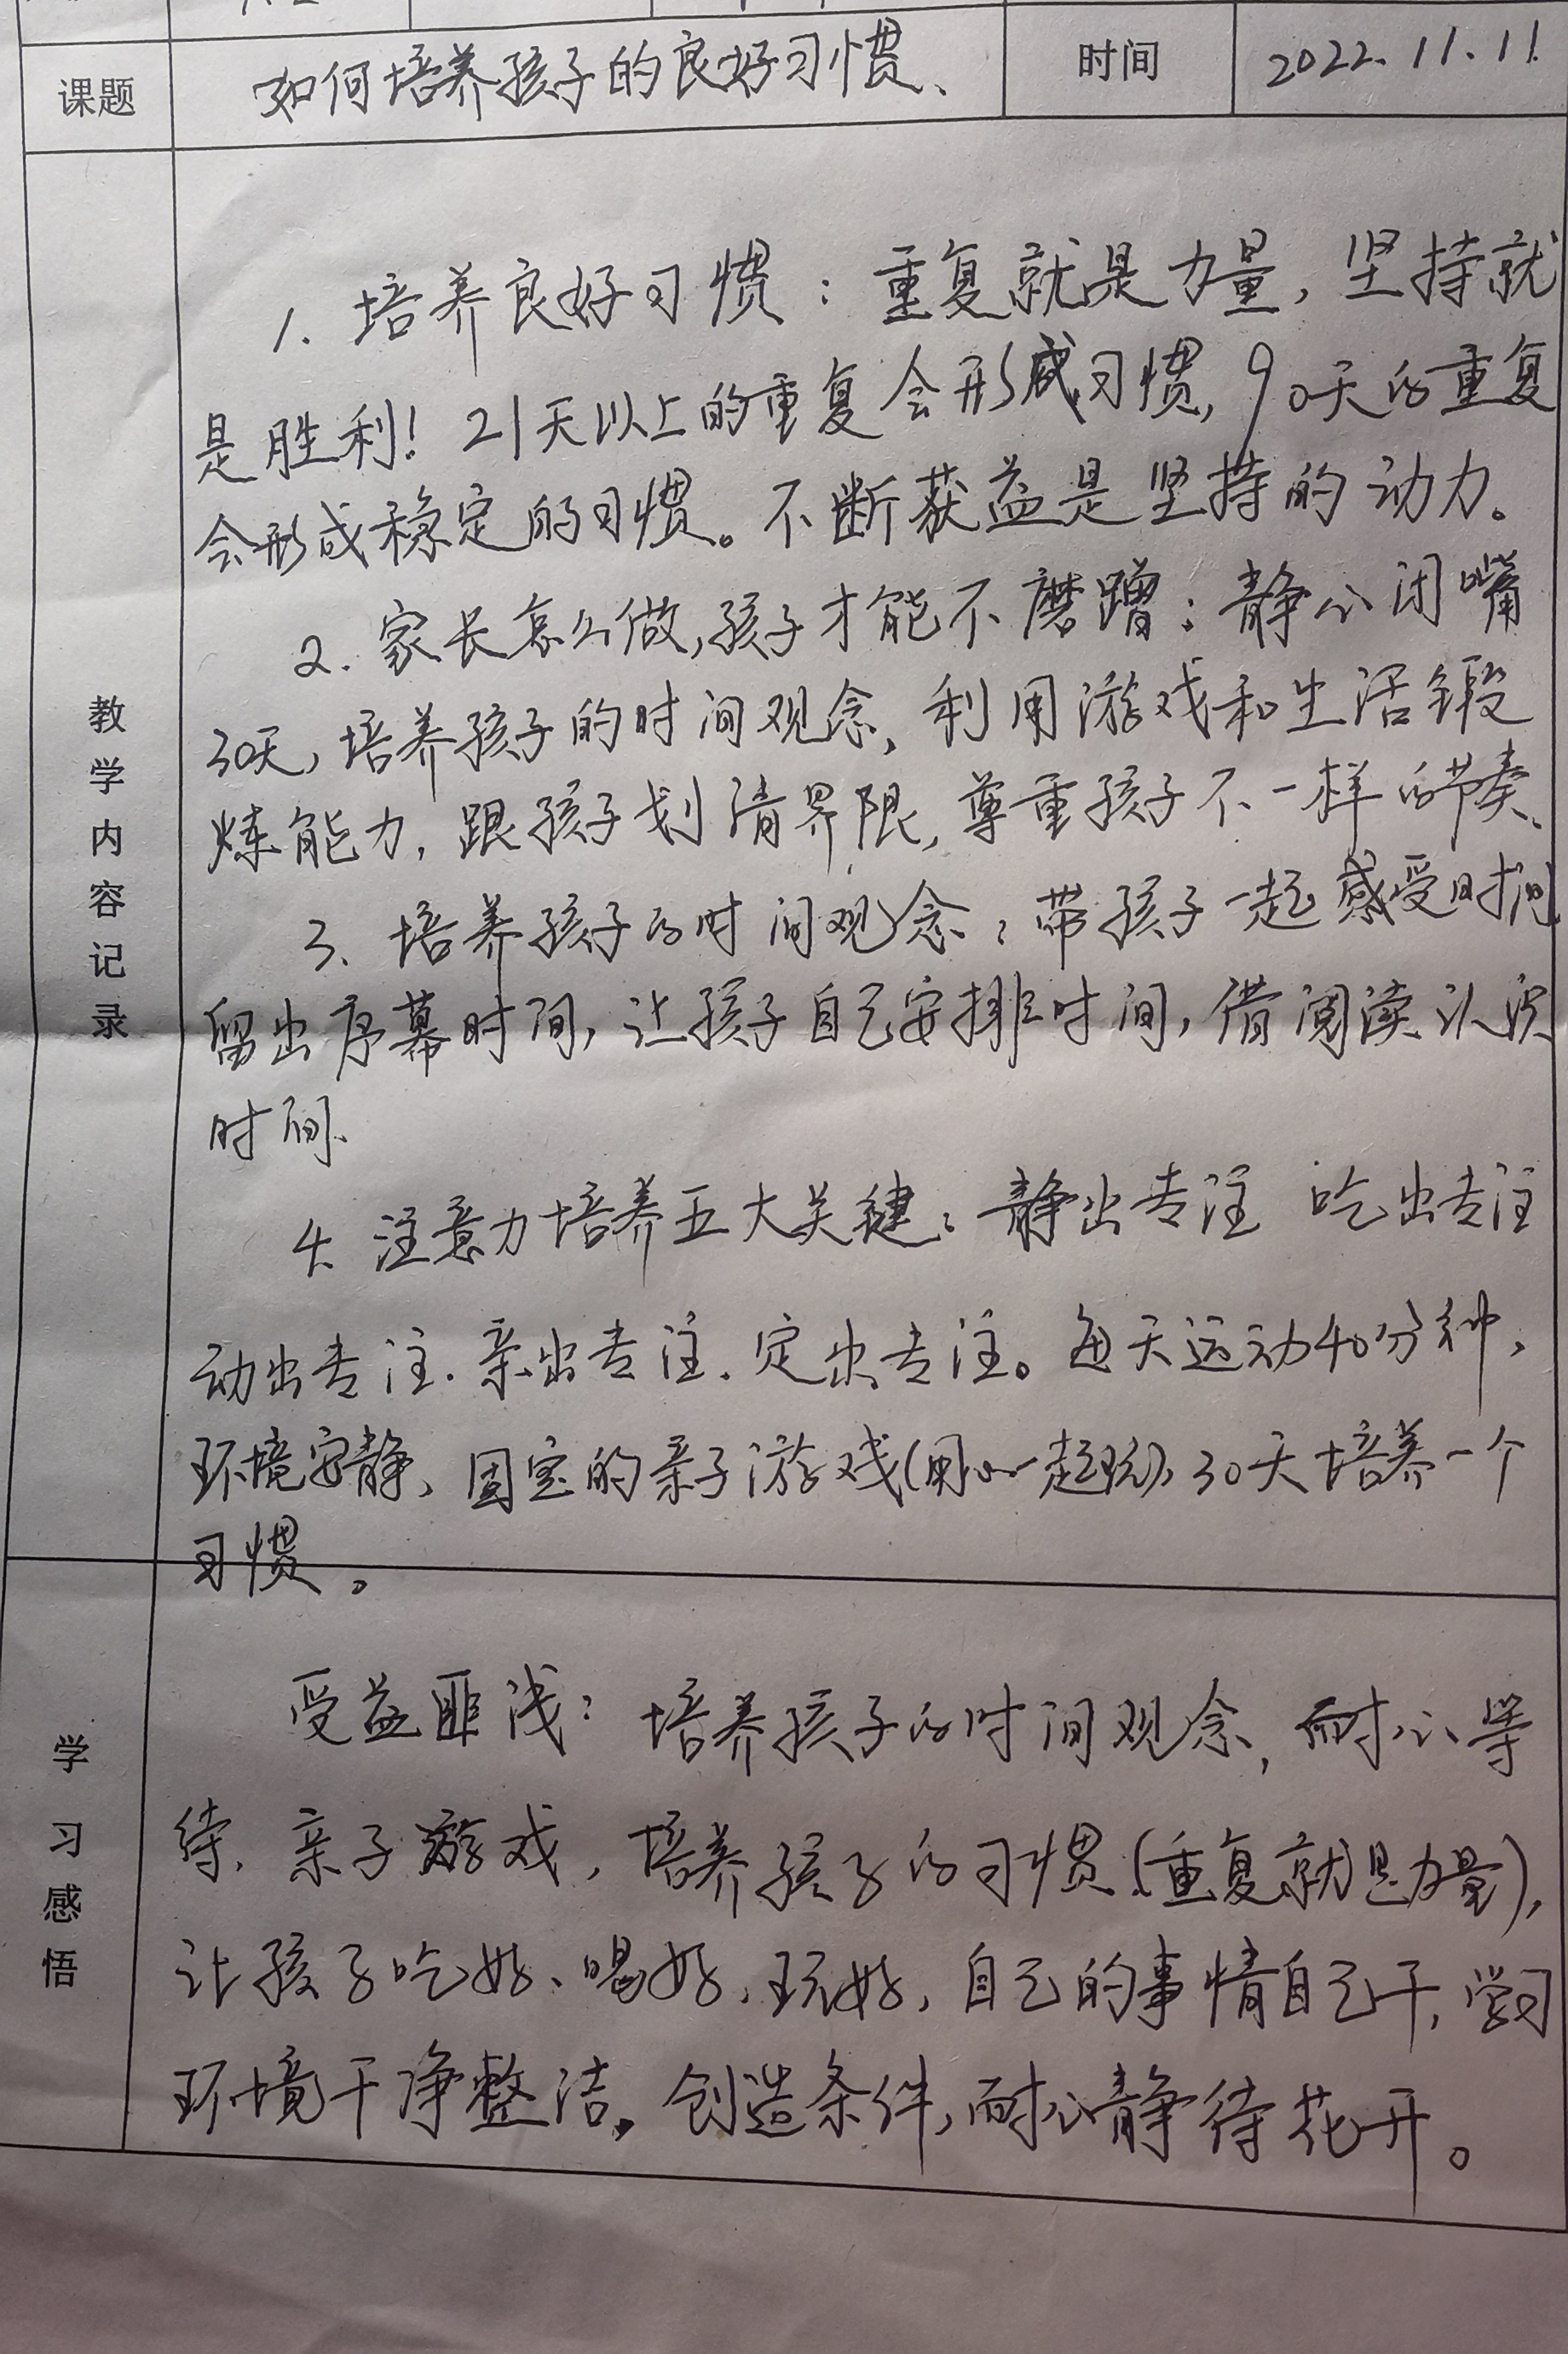 课题 如何培养孩子的良好习惯、 时间 2022.11.11.
教学内容记录
1. 培养良好习惯：重复就是力量，坚持就
是胜利！21天以上的重复会形成习惯，90天的重复
会形成稳定的习惯。不断获益是坚持的动力。
2. 家长怎么做，孩子才能不磨蹭：静心闭嘴
30天，培养孩子的时间观念，利用游戏和生活锻
炼能力，跟孩子划清界限，尊重孩子不一样的节奏、
3、培养孩子的时间观念：带孩子一起感受时间
留出序幕时间，让孩子自己安排时间，借阅读认识
时间、
4、注意力培养五大关键：静出专注 吃出专注
动出专注．亲出专注．定出专注。每天运动40分钟，
环境安静、固定的亲子游戏（用心一起玩），30天培养一个
习惯。
学习感悟
受益匪浅：培养孩子的时间观念，耐心等
待、亲子游戏，培养孩子的习惯（重复就是力量），
让孩子吃好、喝好、玩好，自己的事情自己干，学习
环境干净整洁。创造条件，耐心静待花开。